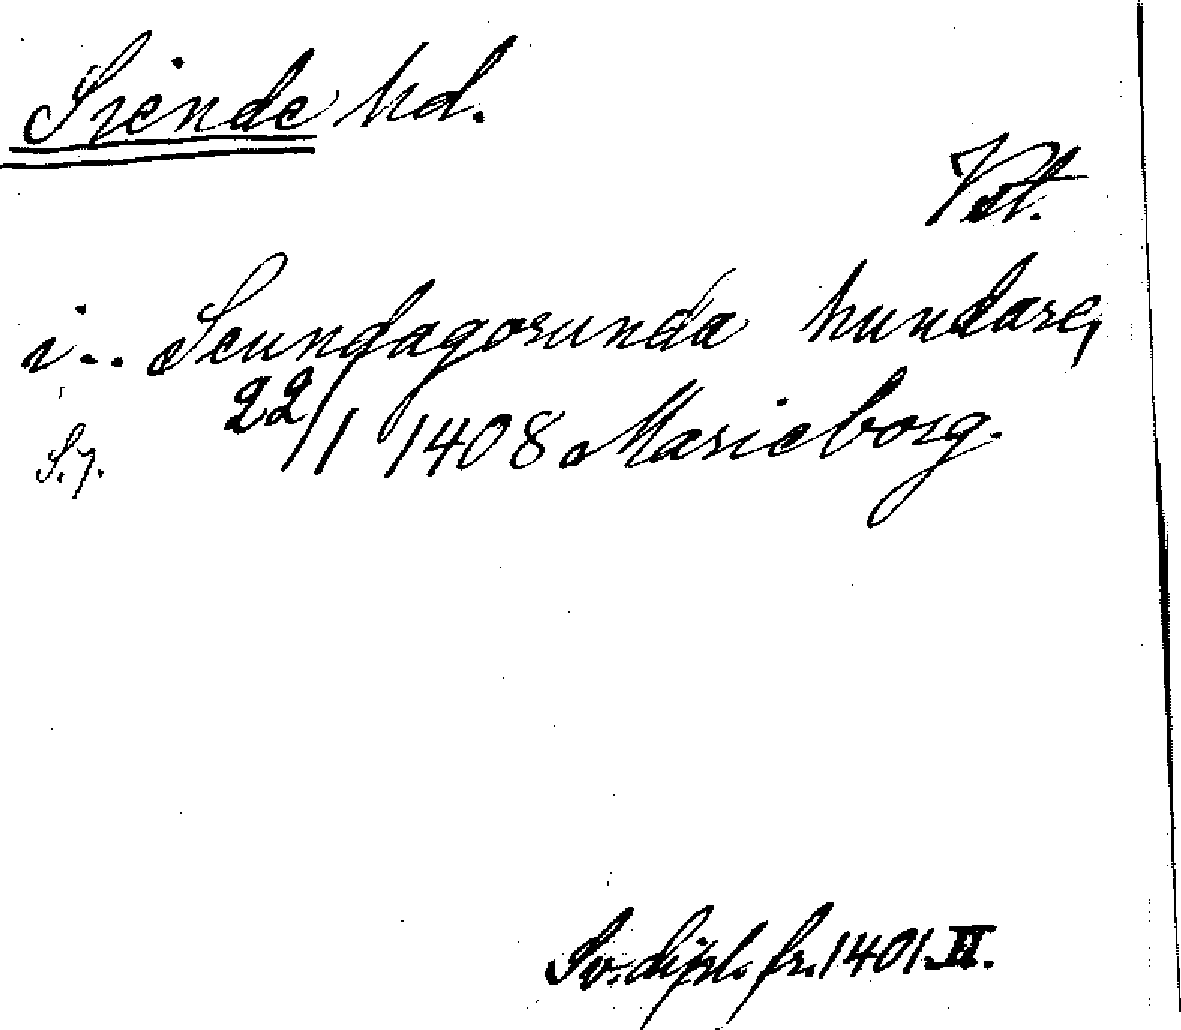 Siende hd.
Vstm.
i.. Seundagorunda hundare,
22/1 1408 Marieborg.
S. 7.
Sv. dipl. fr. 1401. II.